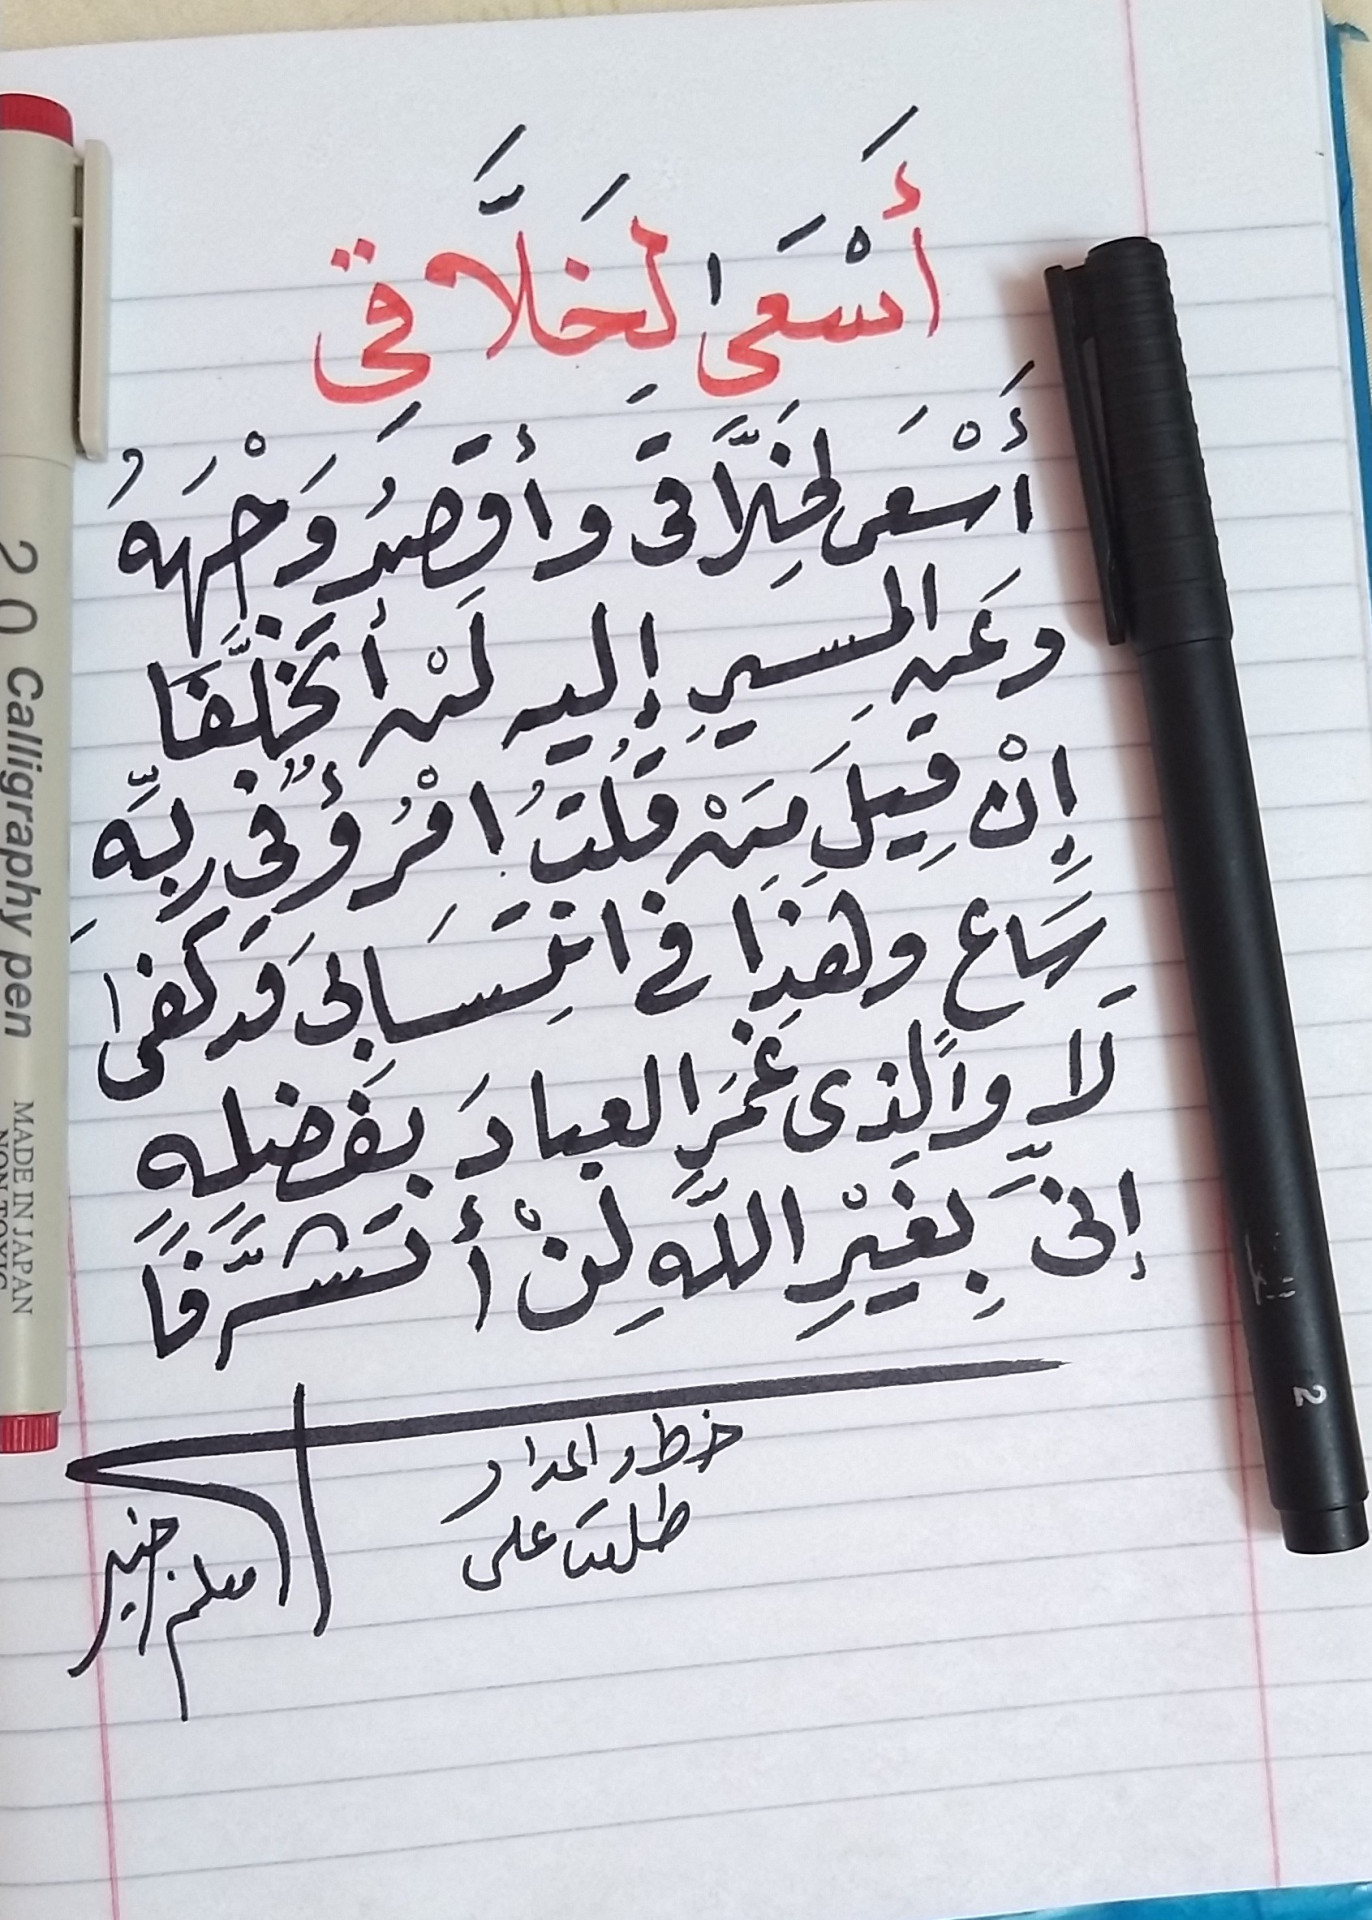 أَسْعَى لِخَلَّاقِي
أَسْعَى لِخَلَّاقِي وأقصِدُ وَجْهَهُ
وعَنِ المسيرِ إليه لَنْ أتخَلَّفَا
إنْ قِيلَ مَنْ قُلتُ امْرُؤٌ في رِبِّهِ
سَاع وهَذا في انتِسَابِي قَد كفى
لَا والَّذي غَمَرَ العبادَ بِفَضلِهِ
إنّي بِغَيْرِ اللَّهِ لَنْ أتَشَرَّفَا
خط واعداد
طلعت على
2 0 Calligraphy pen MADE IN JAPAN
NON TOXIC
2